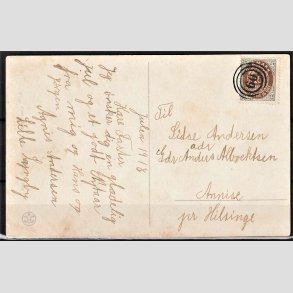 Julen 1918
Kære Faster
Jeg ønsker dig en glædelig
jul og et godt Nytaar
fra mig og Hans og
Børge
Agnes Andersen
Hella
Til
Sidse Andersen
adr
Gdr Anders Albrektsen
Annise
pr Helsinge